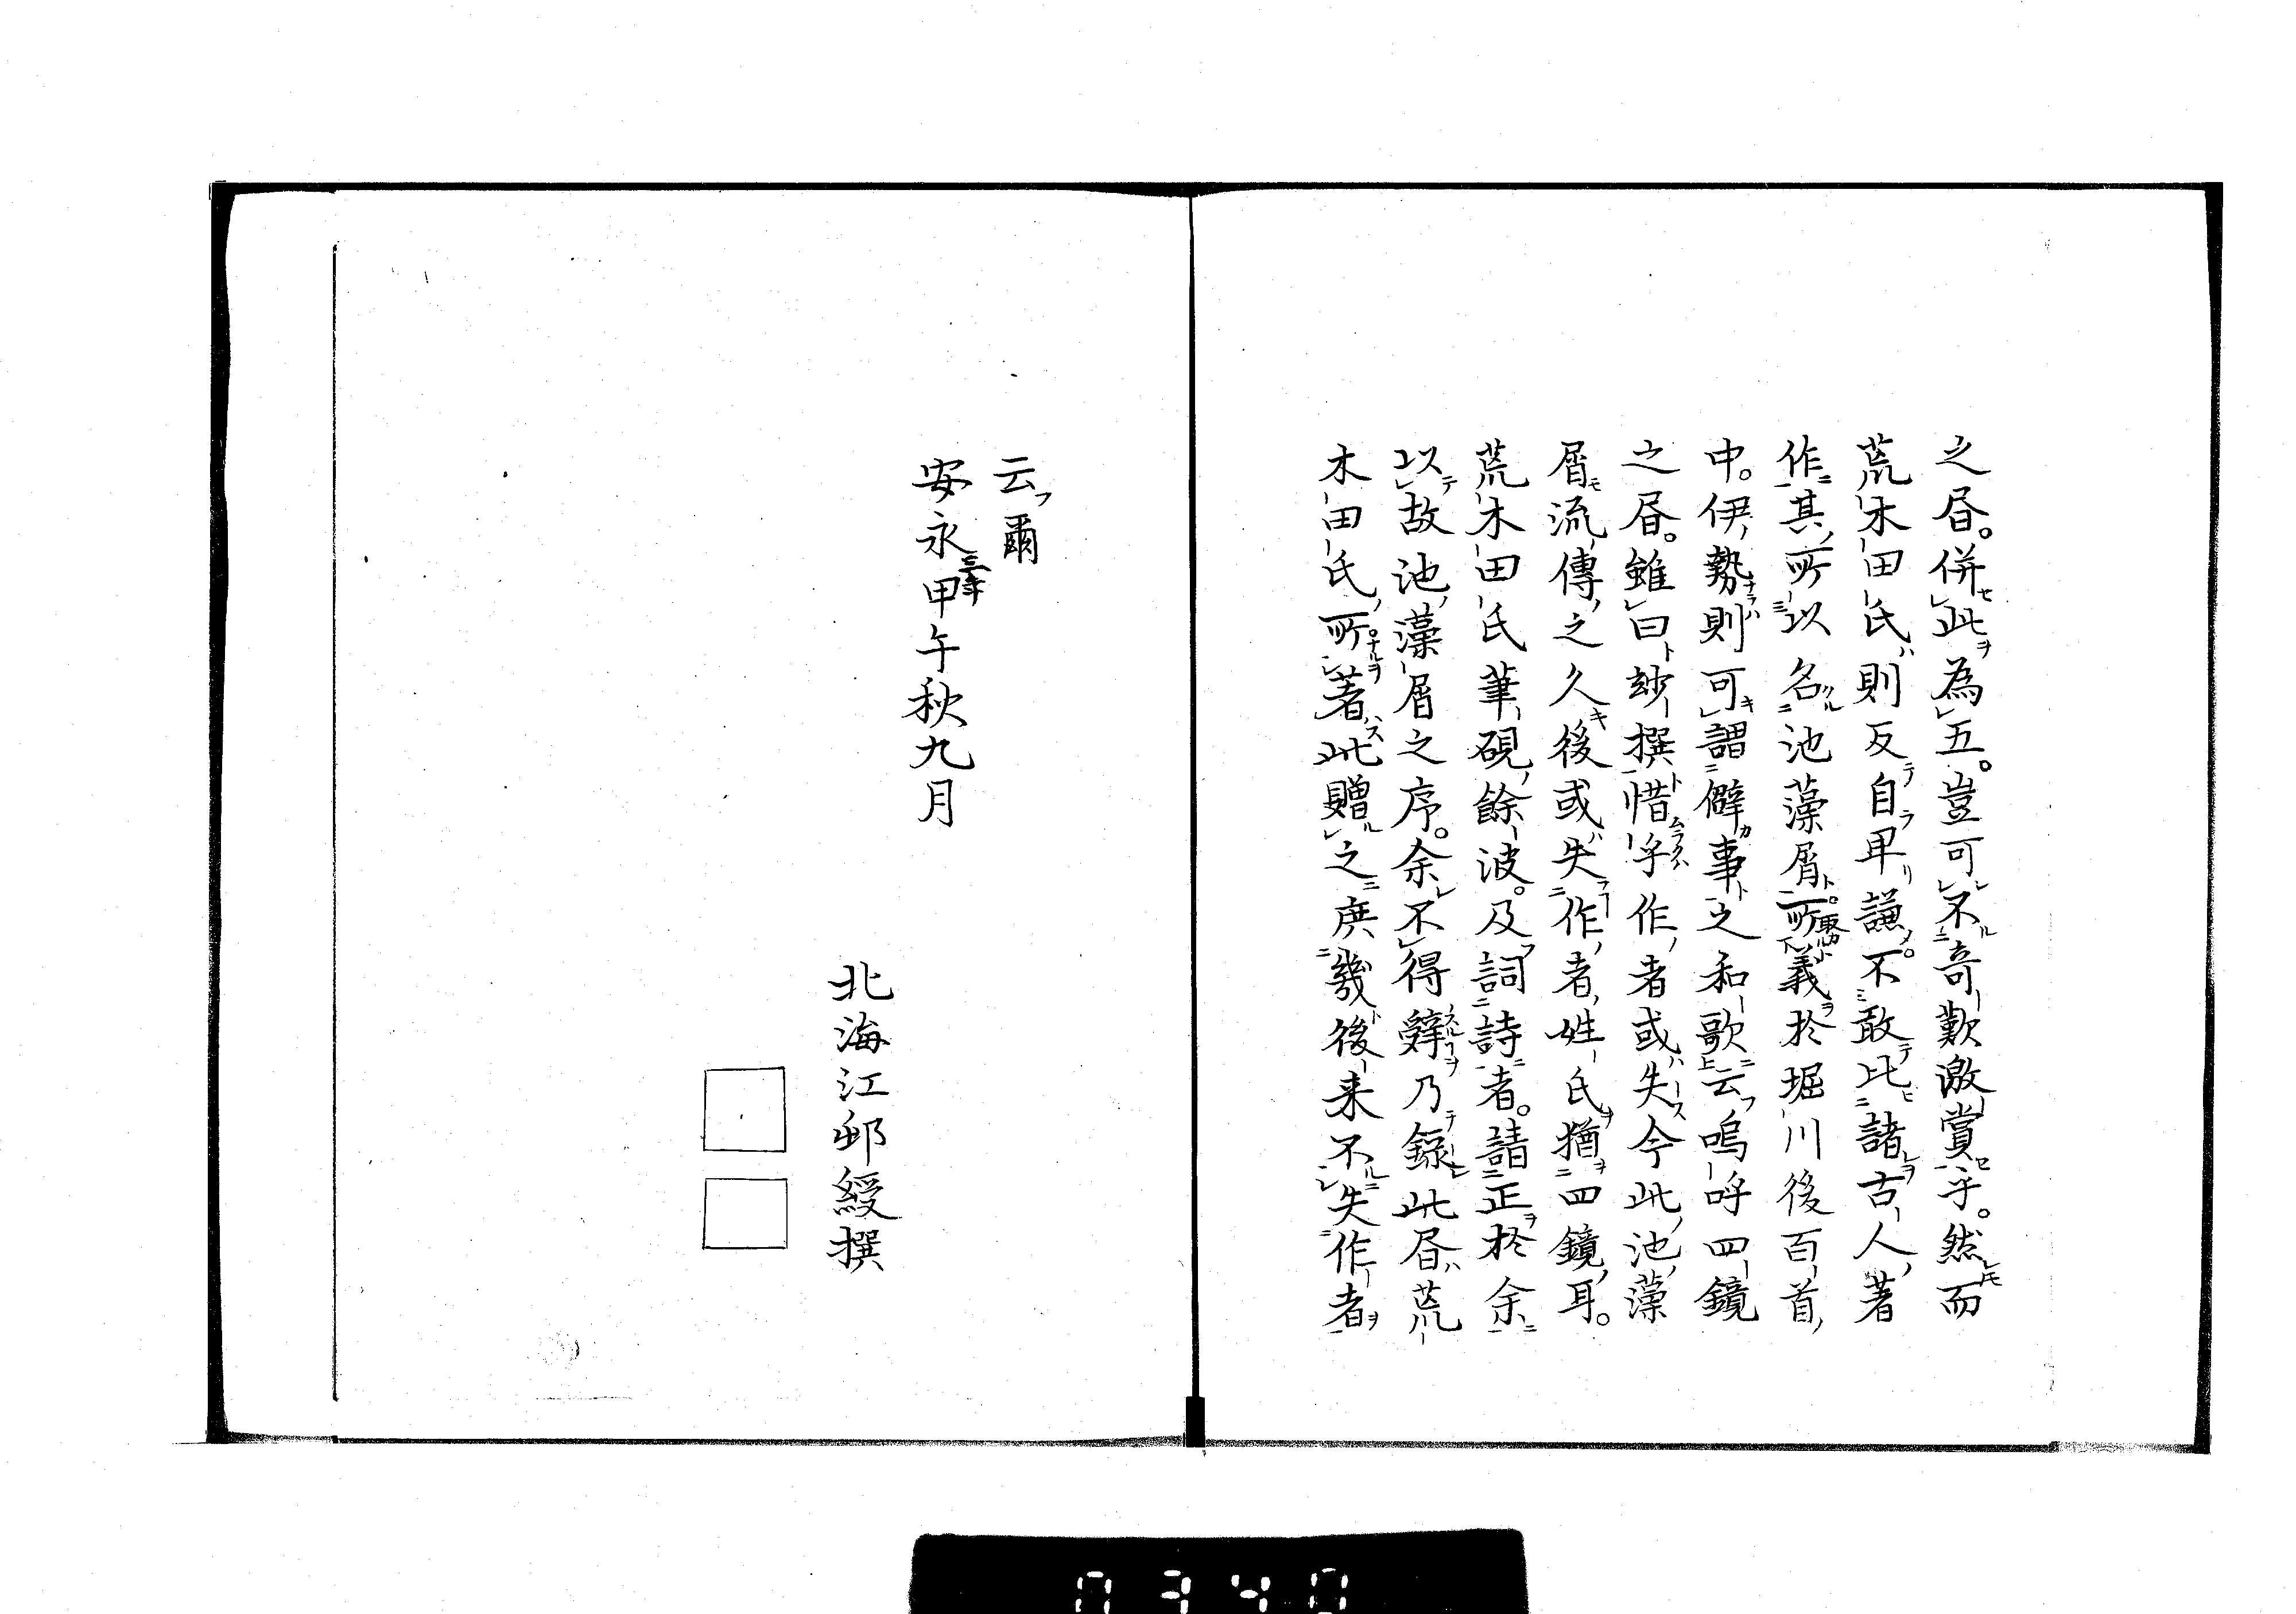 之昏。併此為五。豈可不奇歎激賞乎。然而
荒木田氏則反自卑謙。不敢比諸古人著
作其所以名池藻屑。所義於堀川後百首
中。伊勢則可謂僻事之和歌云嗚呼四鏡
之昏。雖曰鈔撰惜乎作者或失今此池藻
屑流傳之久後或失作者姓氏猶四鏡耳。
荒木田氏筆硯餘波。及詞詩者。請正於余
以故池藻屑之序。余不得辭乃錄此昏荒
木田氏所著此贈之庶幾後来不失作者
云爾
安永三年甲午秋九月
北海江邨綬撰
0340